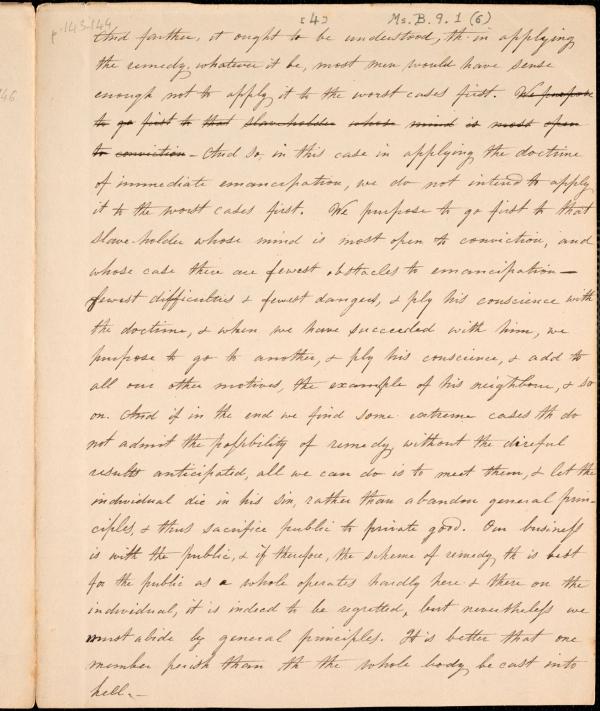 p. 143-144
[4]
Ms. B. 9. 1 (6)
46
And farther, it ought to be understood, th. in applying
the remedy, whatever it be, most men would have sense
enough not to apply it to the worst cases first. We purpose
to go first to that slaveholder whose mind is most open
to conviction - And so, in this case in applying the doctrine
of immediate emancipation, we do not intend to apply
it to the worst cases first. We purpose to go first to that
slave-holder whose mind is most open to conviction, and
whose case there are fewest obstacles to emancipation —
fewest difficulties & fewest dangers, & ply his conscience with
the doctrine, & when we have succeeded with him, we
purpose to go to another, & ply his conscience, & add to
all our other motives, the example of his neighbour, & so
on. And if in the end we find some extreme cases th do
not admit the possibility of remedy without the direful
results anticipated, all we can do is to meet them, & let the
individual die in his sin, rather than abandon general prin-
ciples, & thus sacrifice public to private good. Our business
is with the public, & if therefore, the scheme of remedy th is best
for the public as a whole operates hardly here & there on the
individual, it is indeed to be regretted, but nevertheless we
must abide by general principles. It is better that one
member perish than th the whole body be cast into
hell. —